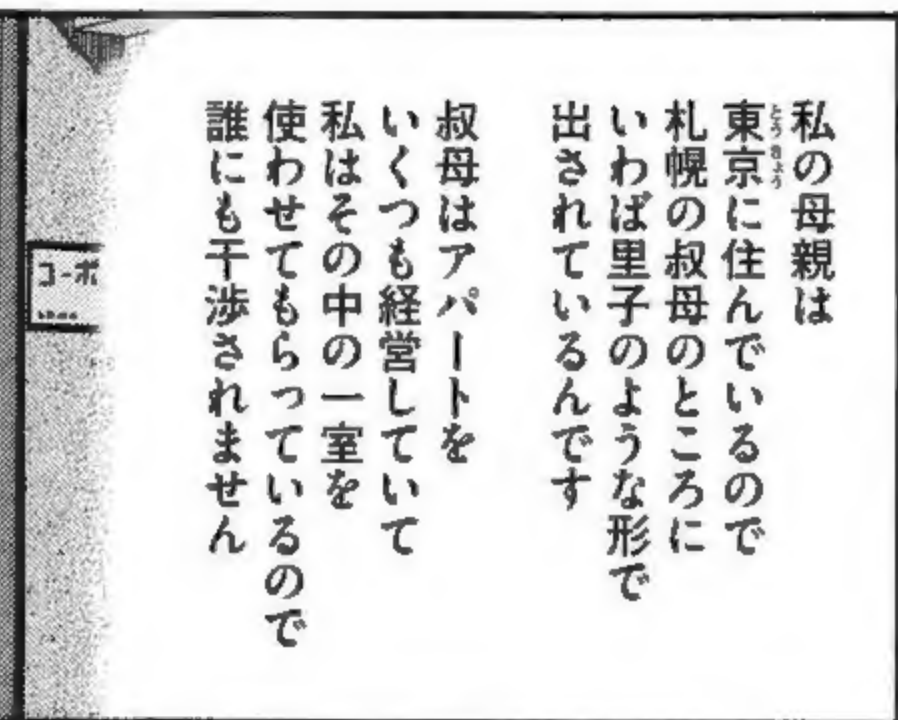 私の母親は
東京に住んでいるので
札幌の叔母のところに
いわば里子のような形で
出されているんです
叔母はアパートを
いくつも経営していて
私はその中の一室を
使わせてもらっているので
誰にも干渉されません
コーポ